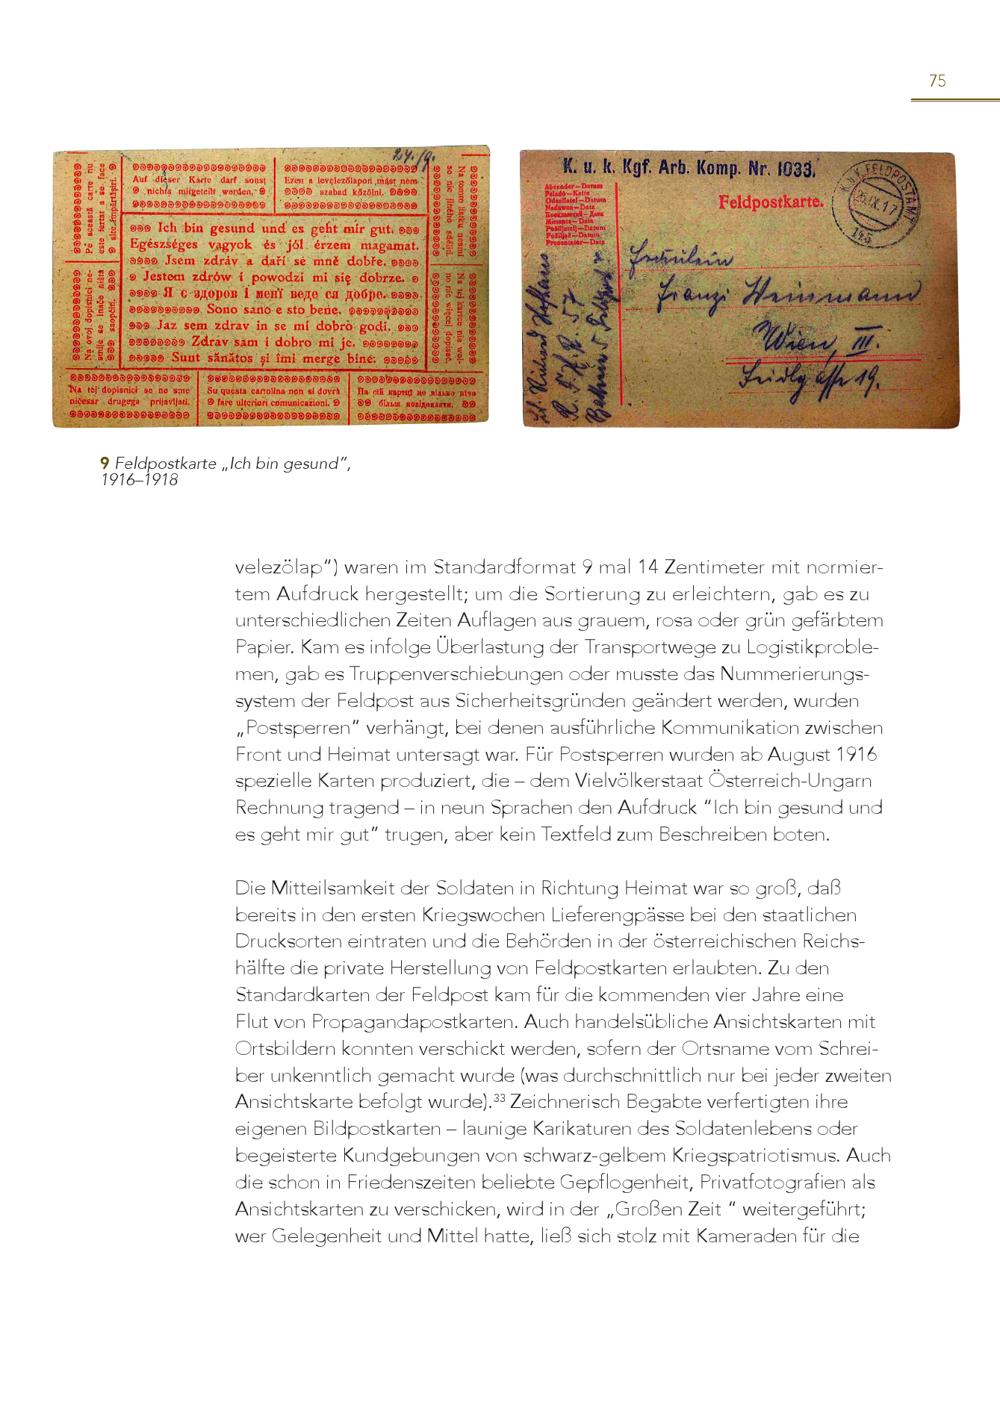 75
24./9.
Auf dieser Karte darf sonst
nichts mitgeteilt werden.
Ezen a levelezőlapon mást nem
szabad közölni.
Pe această carte nu
este iertat a se face
alte împărtășiri.
Na ovoj dopisnici ne-
smije se inače ništa
saopćiti.
Ich bin gesund und es geht mir gut.
Egészséges vagyok és jól érzem magamat.
Jsem zdráv a daří se mně dobře.
Jestem zdrów i powodzi mi się dobrze.
Я є здоров і мені веде ся добре.
Sono sano e sto bene.
Jaz sem zdrav in se mi dobro godi.
Zdrav sam i dobro mi je.
Sunt sănătos și îmi merge bine.
Na tomto lístku nesmí
se nic jiného sděliti.
Na tej kartce nie wol-
no nic więcej dopisać.
Na tej dopisnici se ne sme
ničesar drugega prijavljati.
Su questa cartolina non si dovrà
fare ulteriori comunicazioni.
На сій картці не вільно нічо
більш повідомляти.
K. u. k. Kgf. Arb. Komp. Nr. 1033.
Absender—Datum
Feladó—Kelte
Odesílatel—Datum
Nadawca—Data
Mittente—Data
Pošiljatelj—Datum
Pošiljač—Datum
Feldpostkarte.
K.u.K. FELDPOSTAMT
26.IX.17
Fräulein
Franzi Weinmann
Wien, III.
Seidlgasse 19.
9 Feldpostkarte „Ich bin gesund”,
1916–1918
velezölap“) waren im Standardformat 9 mal 14 Zentimeter mit normier-
tem Aufdruck hergestellt; um die Sortierung zu erleichtern, gab es zu
unterschiedlichen Zeiten Auflagen aus grauem, rosa oder grün gefärbtem
Papier. Kam es infolge Überlastung der Transportwege zu Logistikproble-
men, gab es Truppenverschiebungen oder musste das Nummerierungs-
system der Feldpost aus Sicherheitsgründen geändert werden, wurden
„Postsperren” verhängt, bei denen ausführliche Kommunikation zwischen
Front und Heimat untersagt war. Für Postsperren wurden ab August 1916
spezielle Karten produziert, die – dem Vielvölkerstaat Österreich-Ungarn
Rechnung tragend – in neun Sprachen den Aufdruck “Ich bin gesund und
es geht mir gut” trugen, aber kein Textfeld zum Beschreiben boten.
Die Mitteilsamkeit der Soldaten in Richtung Heimat war so groß, daß
bereits in den ersten Kriegswochen Lieferengpässe bei den staatlichen
Drucksorten eintraten und die Behörden in der österreichischen Reichs-
hälfte die private Herstellung von Feldpostkarten erlaubten. Zu den
Standardkarten der Feldpost kam für die kommenden vier Jahre eine
Flut von Propagandapostkarten. Auch handelsübliche Ansichtskarten mit
Ortsbildern konnten verschickt werden, sofern der Ortsname vom Schrei-
ber unkenntlich gemacht wurde (was durchschnittlich nur bei jeder zweiten
Ansichtskarte befolgt wurde).³³ Zeichnerisch Begabte verfertigten ihre
eigenen Bildpostkarten – launige Karikaturen des Soldatenlebens oder
begeisterte Kundgebungen von schwarz-gelbem Kriegspatriotismus. Auch
die schon in Friedenszeiten beliebte Gepflogenheit, Privatfotografien als
Ansichtskarten zu verschicken, wird in der „Großen Zeit “ weitergeführt;
wer Gelegenheit und Mittel hatte, ließ sich stolz mit Kameraden für die